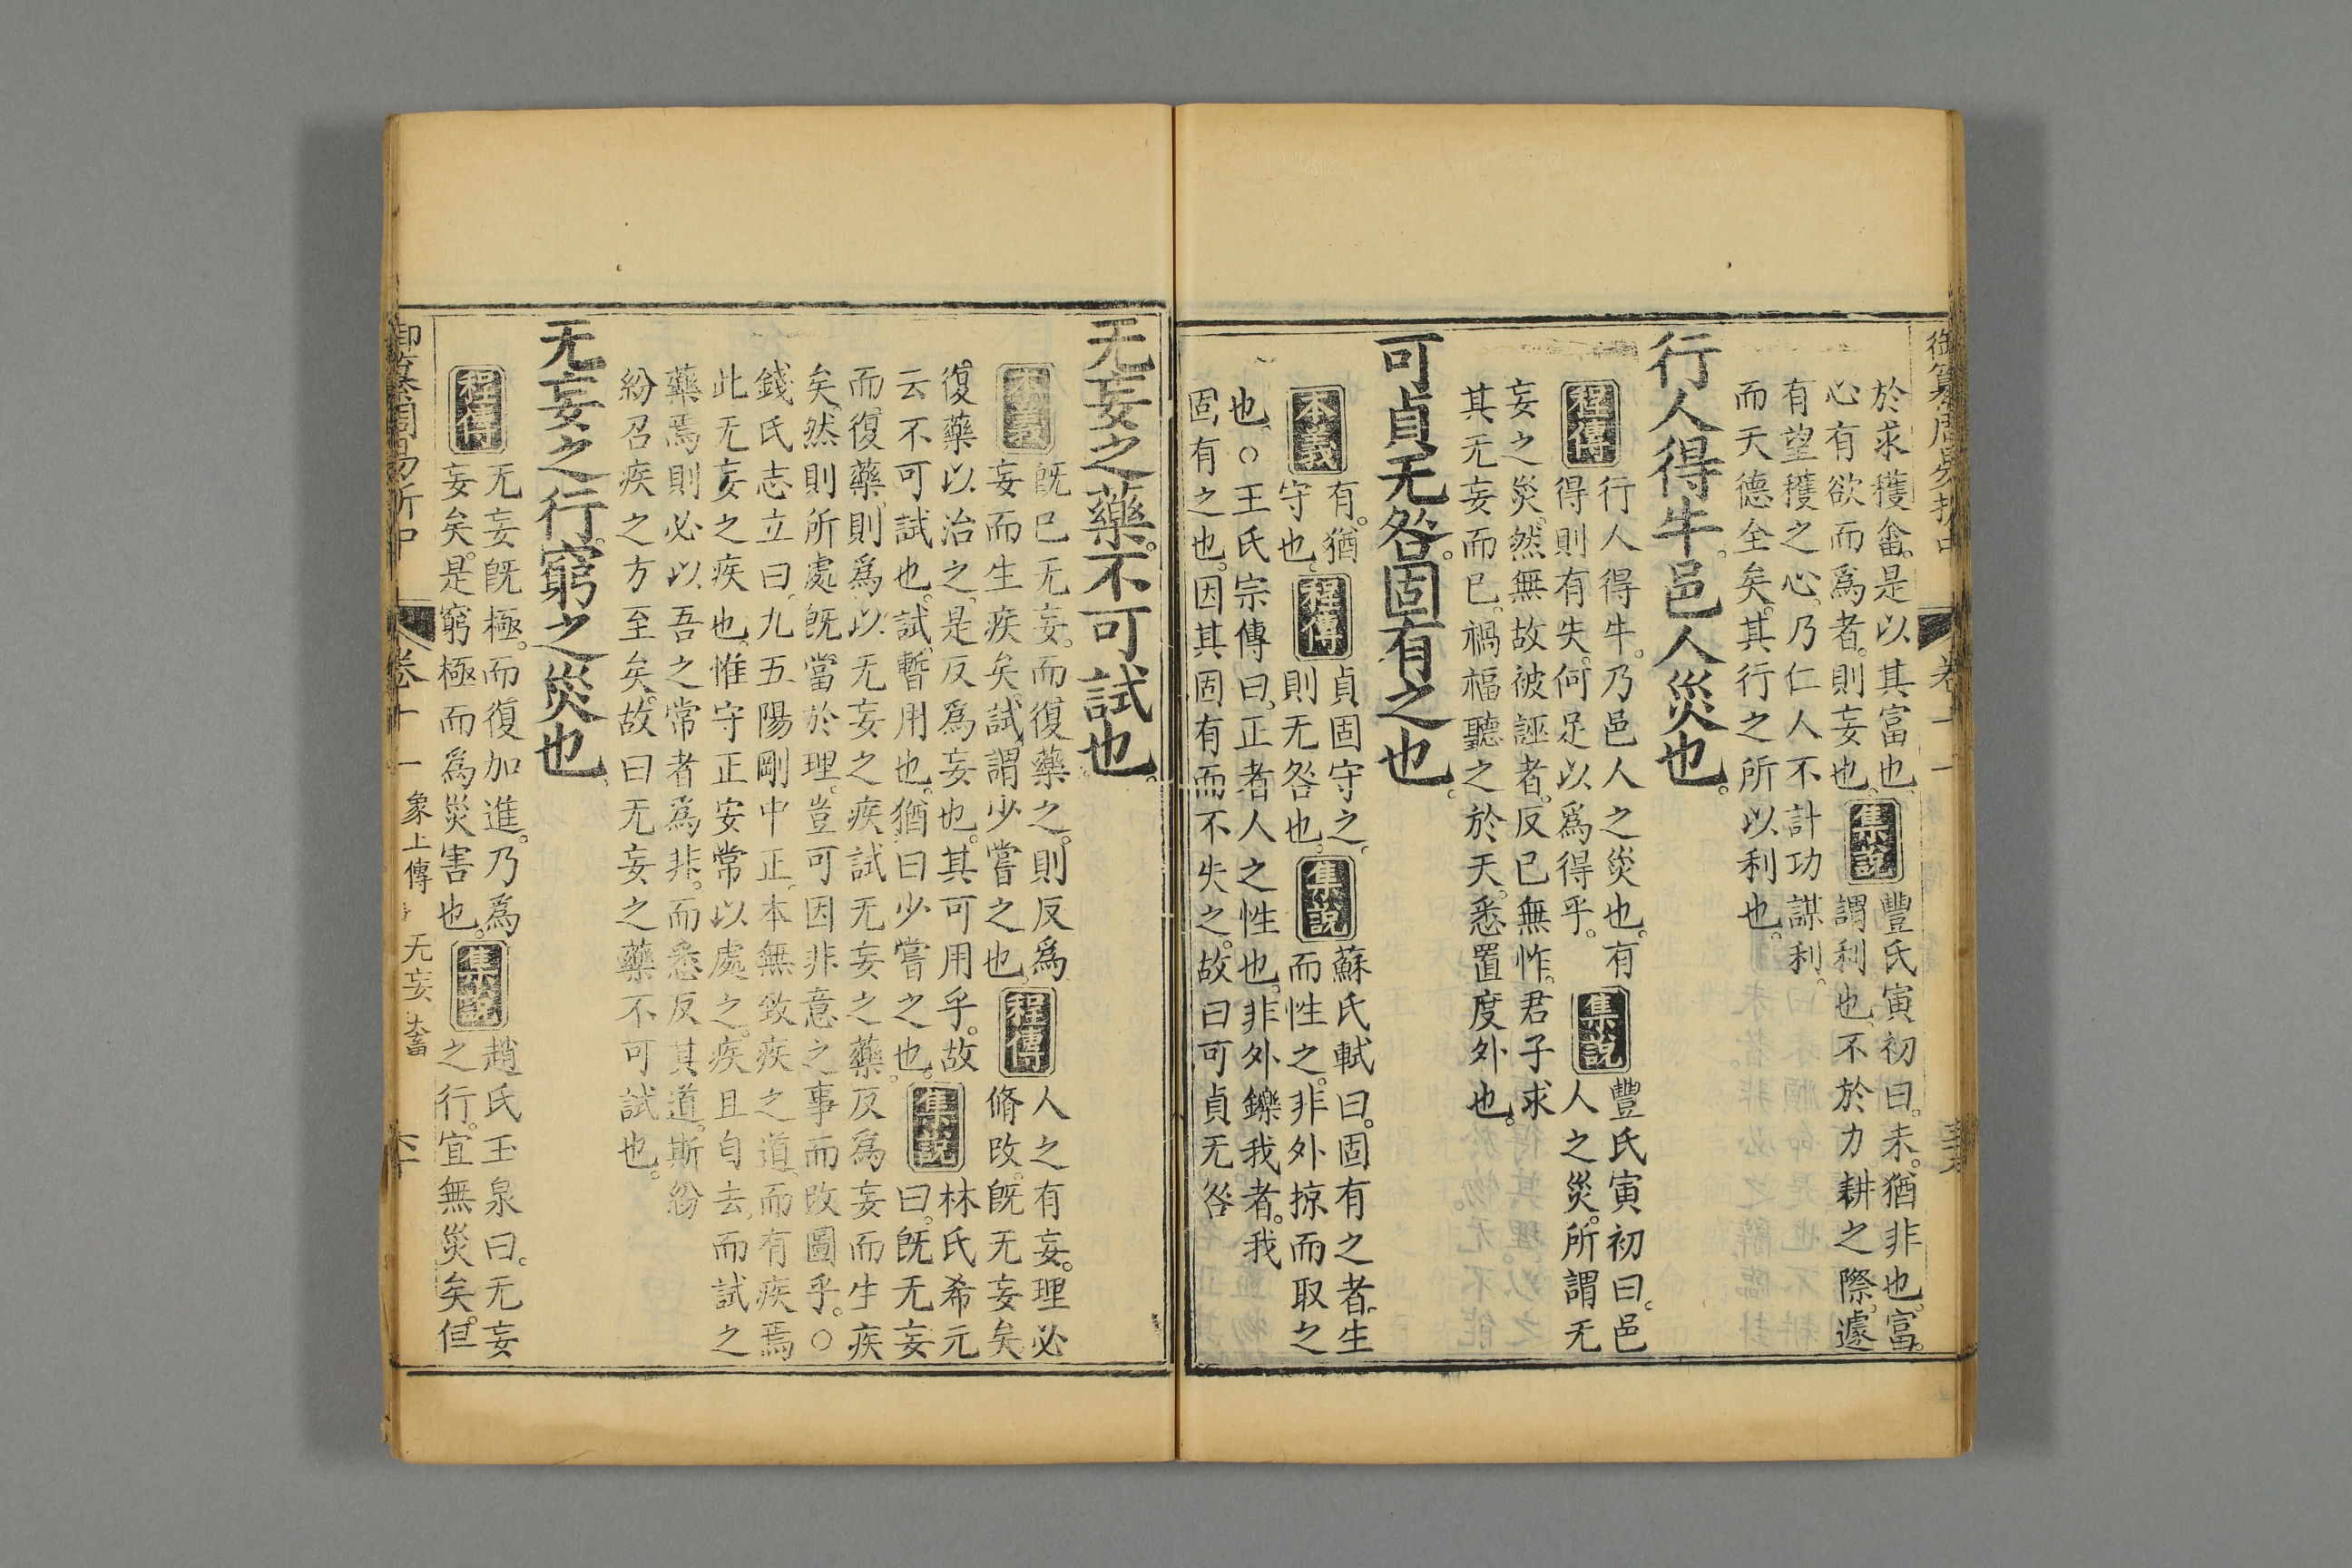 御纂周易折中 卷十一
於求穫畬。是以其富也。集說 豐氏寅初曰。未。猶非也。富。
心有欲而爲者。則妄也。謂利也。不於力耕之際。遽
有望穫之心。乃仁人不計功謀利。
而天德全矣。其行之所以利也。
行人得牛。邑人災也。
程傳 行人得牛。乃邑人之災也。有
得則有失。何足以爲得乎。集說 豐氏寅初曰。邑
人之災。所謂无
妄之災。然無故被誣者。反已無怍。君子求
其无妄而已。禍福聽之於天。悉置度外也。
可貞无咎。固有之也。
本義 有。猶
守也。程傳 貞固守之。
則无咎也。集說 蘇氏軾曰。固有之者。生
而性之。非外掠而取之
也。○王氏宗傳曰。正者人之性也。非外鑠我者。我
固有之也。因其固有而不失之。故曰可貞无咎
无妄之藥。不可試也。
本義 旣已无妄。而復藥之。則反爲
妄而生疾矣。試。謂少嘗之也。程傳 人之有妄。理必
脩改。旣无妄矣。
復藥以治之。是反爲妄也。其可用乎。故
云不可試也。試。暫用也。猶曰少嘗之也。集說 林氏希元
曰。旣无妄
而復藥。則爲以无妄之疾。試无妄之藥。反爲妄而生疾
矣。然則所處旣當於理。豈可因非意之事而改圖乎。○
錢氏志立曰。九五陽剛中正。本無致疾之道。而有疾焉
此无妄之疾也。惟守正安常以處之。疾且自去。而試之
藥焉。則必以吾之常者爲非。而悉反其道。斯紛
紛召疾之方至矣。故曰无妄之藥不可試也。
无妄之行。窮之災也。
程傳 无妄旣極。而復加進。乃爲
妄矣。是窮極而爲災害也。集說 趙氏玉泉曰。无妄
之行。宜無災矣。但
御纂周易折中 卷十一 象上傳 无妄 大畜